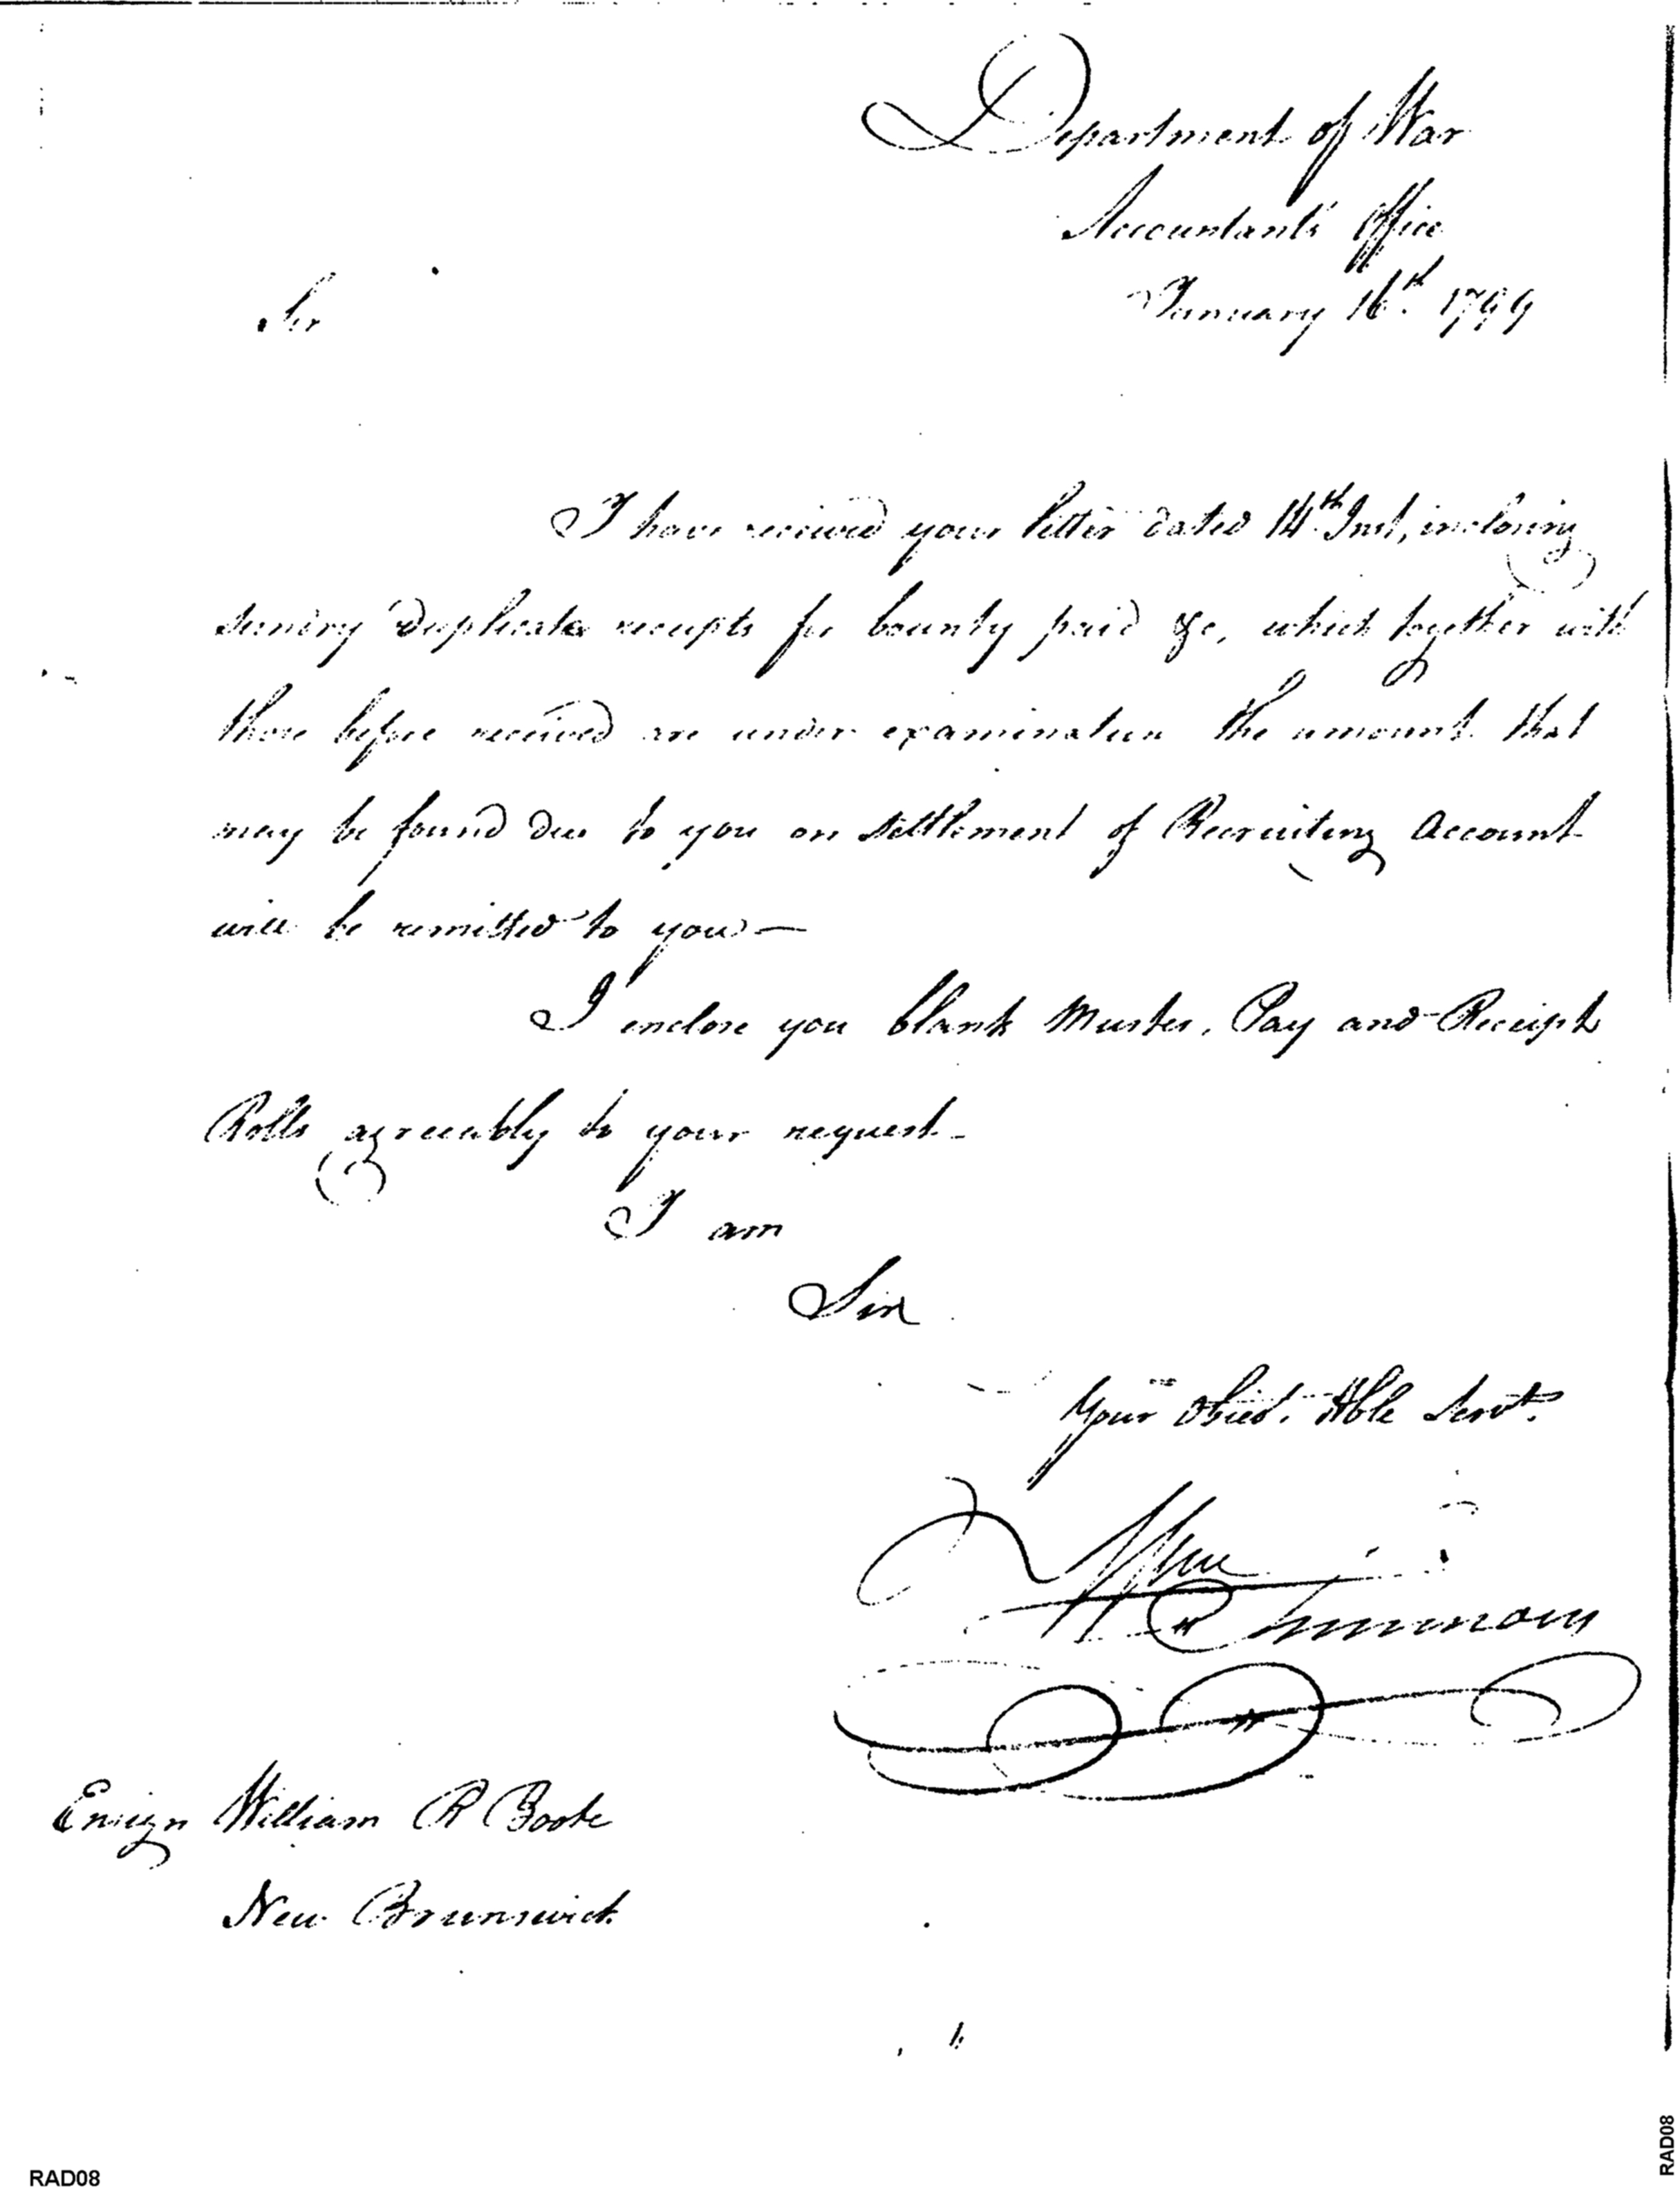 Department of War
Accountants Office
January 16th. 1799
Sir
I have received your letter dated 14th Inst, inclosing
sundry duplicate receipts for bounty paid &c, which together with
those before received are under examination the amount that
may be found due to you on settlement of Recruiting Account
will be remitted to you—
I enclose you blank Muster, Pay and Receipt
Rolls agreeably to your request-
I am
Sir
Your Obied. Hble Servt.
Wm Simmons
Ensign William R Boote
New Brunswick
RAD08
RAD08